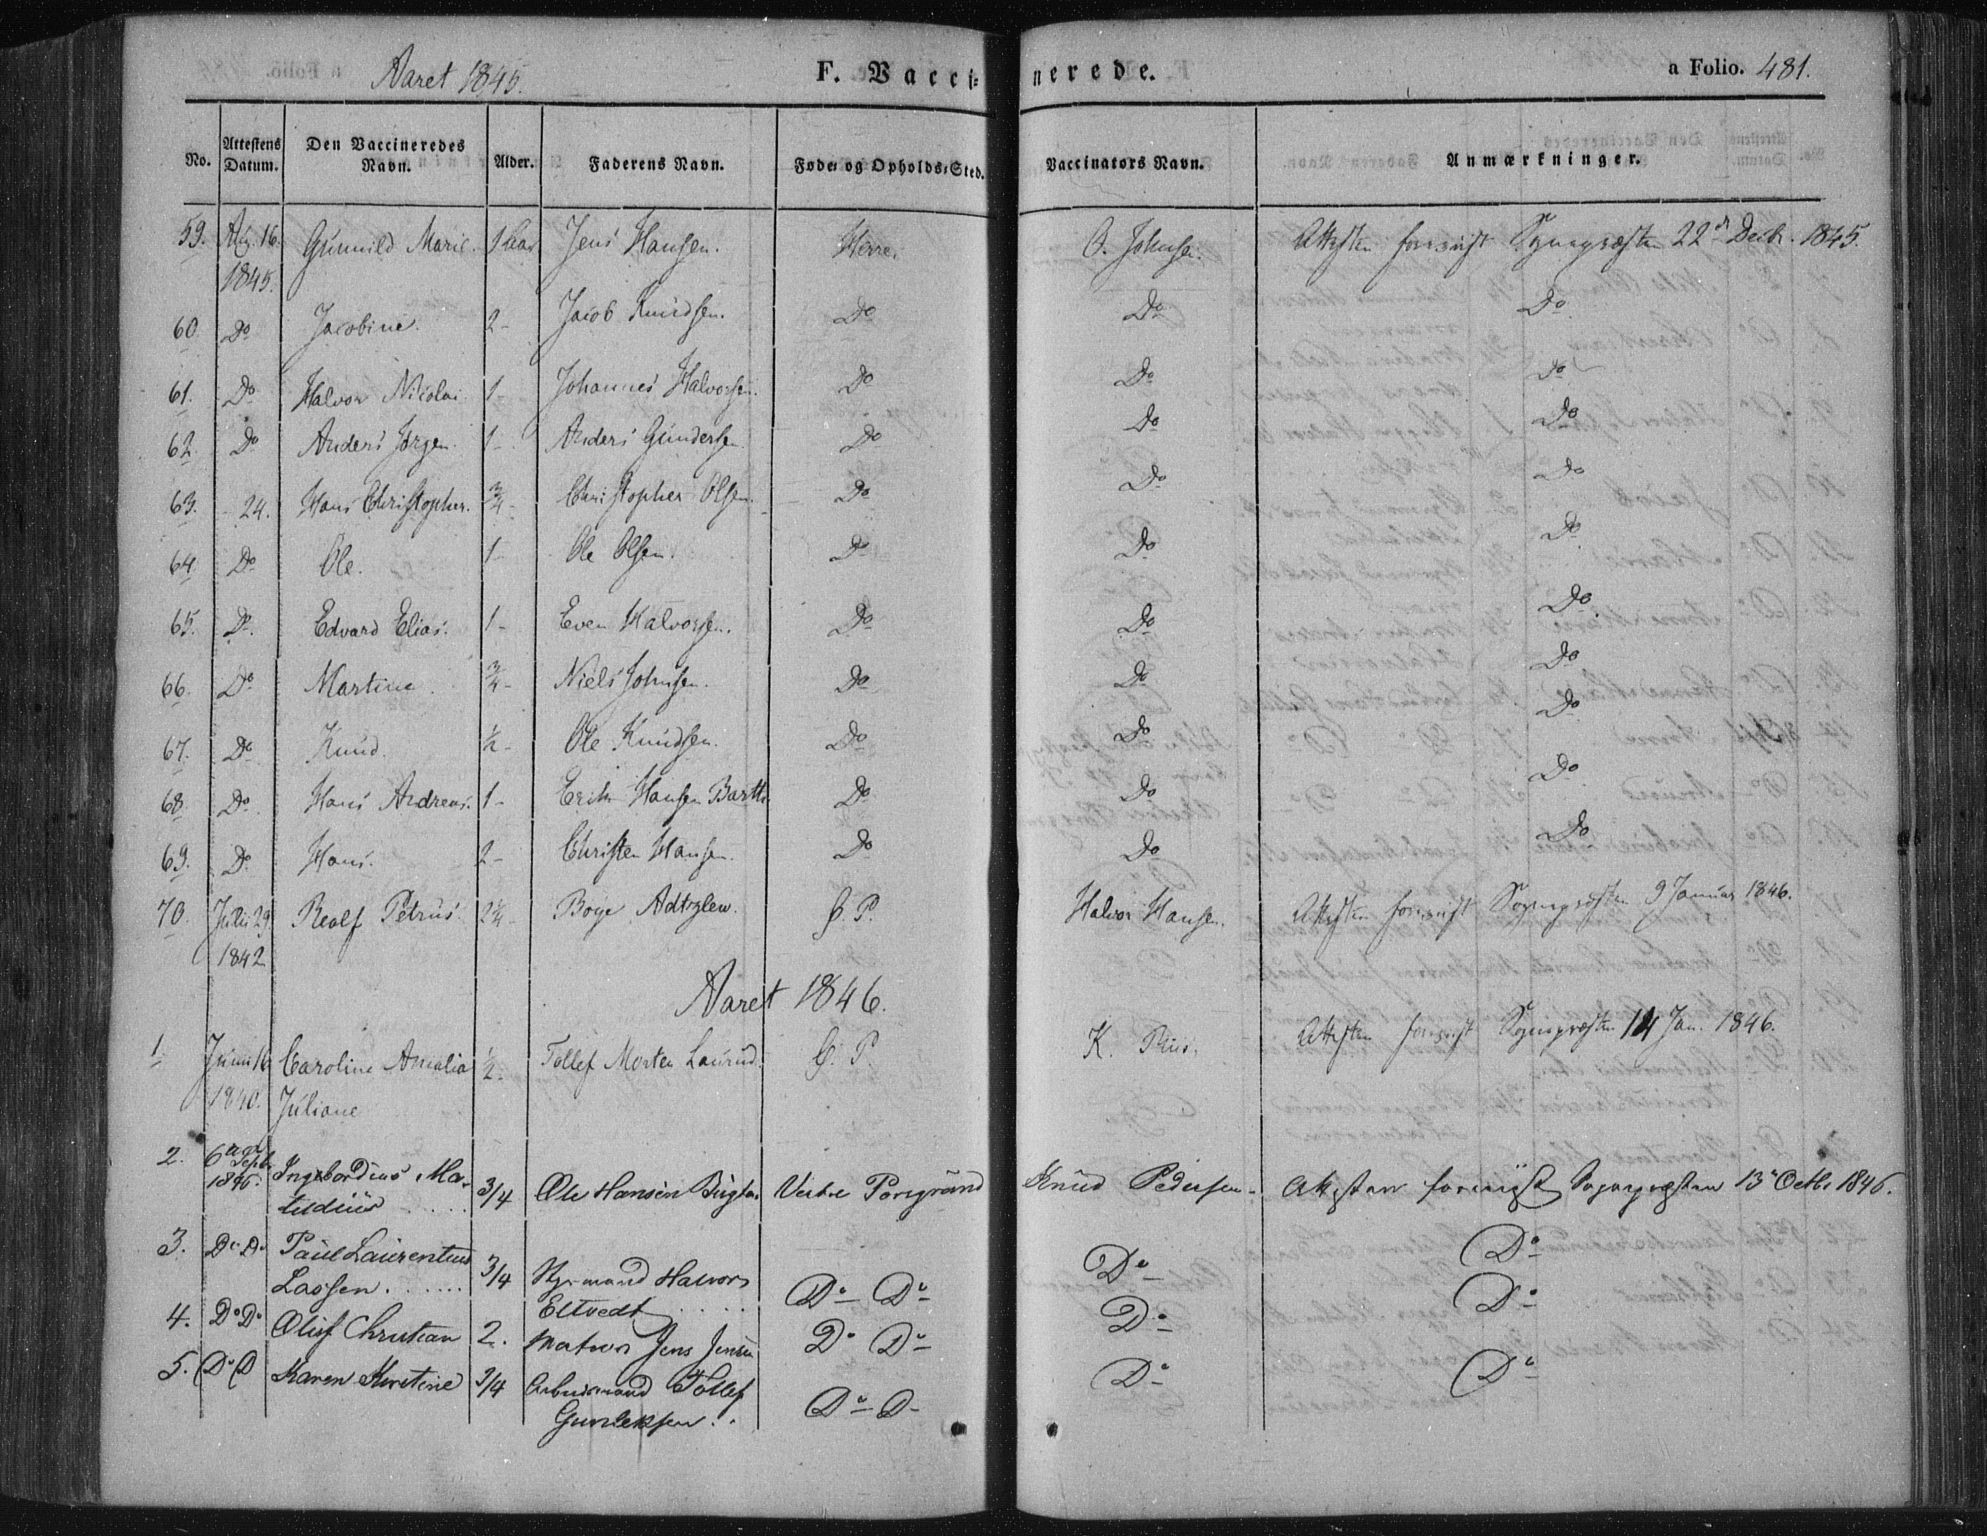 Aaret 1845. F. Vacci=nerede. a Folio. 481.
No. Attestens Datum. Den Vaccineredes Navn. Alder. Faderens Navn. Føde= og Opholds=Sted. Vaccinators Navn. Anmærkninger.
59. Aug. 16. Gunnild Marie. 1 Aar Jens Hansen. Herre. O. Johnsen. Attesten foreviist Sognepræsten 22de Decbr. 1845.
1845.
60. Do Jacobine. 2 - Jacob Knudsen. Do Do Do
61. Do Halvor Nicolai 1 - Johannes Halvorsen. Do Do Do
62. Do Anders Jørgen. 1 - Anders Gundersen Do Do Do
63. - 24. Hans Christopher. 3/4 - Christopher Olsen. Do Do Do
64. Do Ole. 1 - Ole Olsen. Do Do Do
65. Do. Edvard Elias. 1 - Even Halvorsen. Do Do Do
66. Do Martine 3/4 - Niels Johnsen. Do Do Do
67. Do Knud. 1/2 - Ole Knudsen. Do Do Do
68. Do Hans Andreas. 1 - Erik Hansen Do Do Do
69. Do. Hans. 2 - Christen Hansen. Do Do Do
70. Juli 29 Realf Petrus. 2 1/4 - Boye P. Halvor Hansen. Attesten foreviist Sognepræsten 9 Januar 1846.
1842
Aaret 1846.
1 Juni 16 Caroline Amalia 1/2 - Tollef Morten Laurud. P. K. Attesten foreviist Sognepræsten 14 Jan. 1846.
1840. Juliane
2. 6te Septbr 1846. Ingebordius Ma-
tudius ..... 3/4 Ole Hansen Vestre Porsgrund Knud Pedersen - Attesten foreviist Sognepræsten 13 Octb. 1846.
3. Do Do Paul Laurentius
Lassen ...... 3/4 Styrmand Halvor
Eltvedt ..... Do - Do - Do - Do -
4. Do Do Oluf Christian 2. Matros Jens Jensen Do Do - Do - Do -
5. Do D Karen Kirstine 3/4 Arbeidsmand Tollef
Gunleksen .. Do - D - Do - Do -